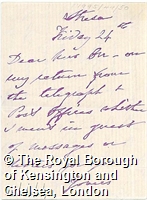 Stresa
Friday 24th
Dear Miss Orr - on
my return from
the telegraph &
Post Offices whither
I went in quest
of messages or
© The Royal Borough
of Kensington and
Chelsea, London